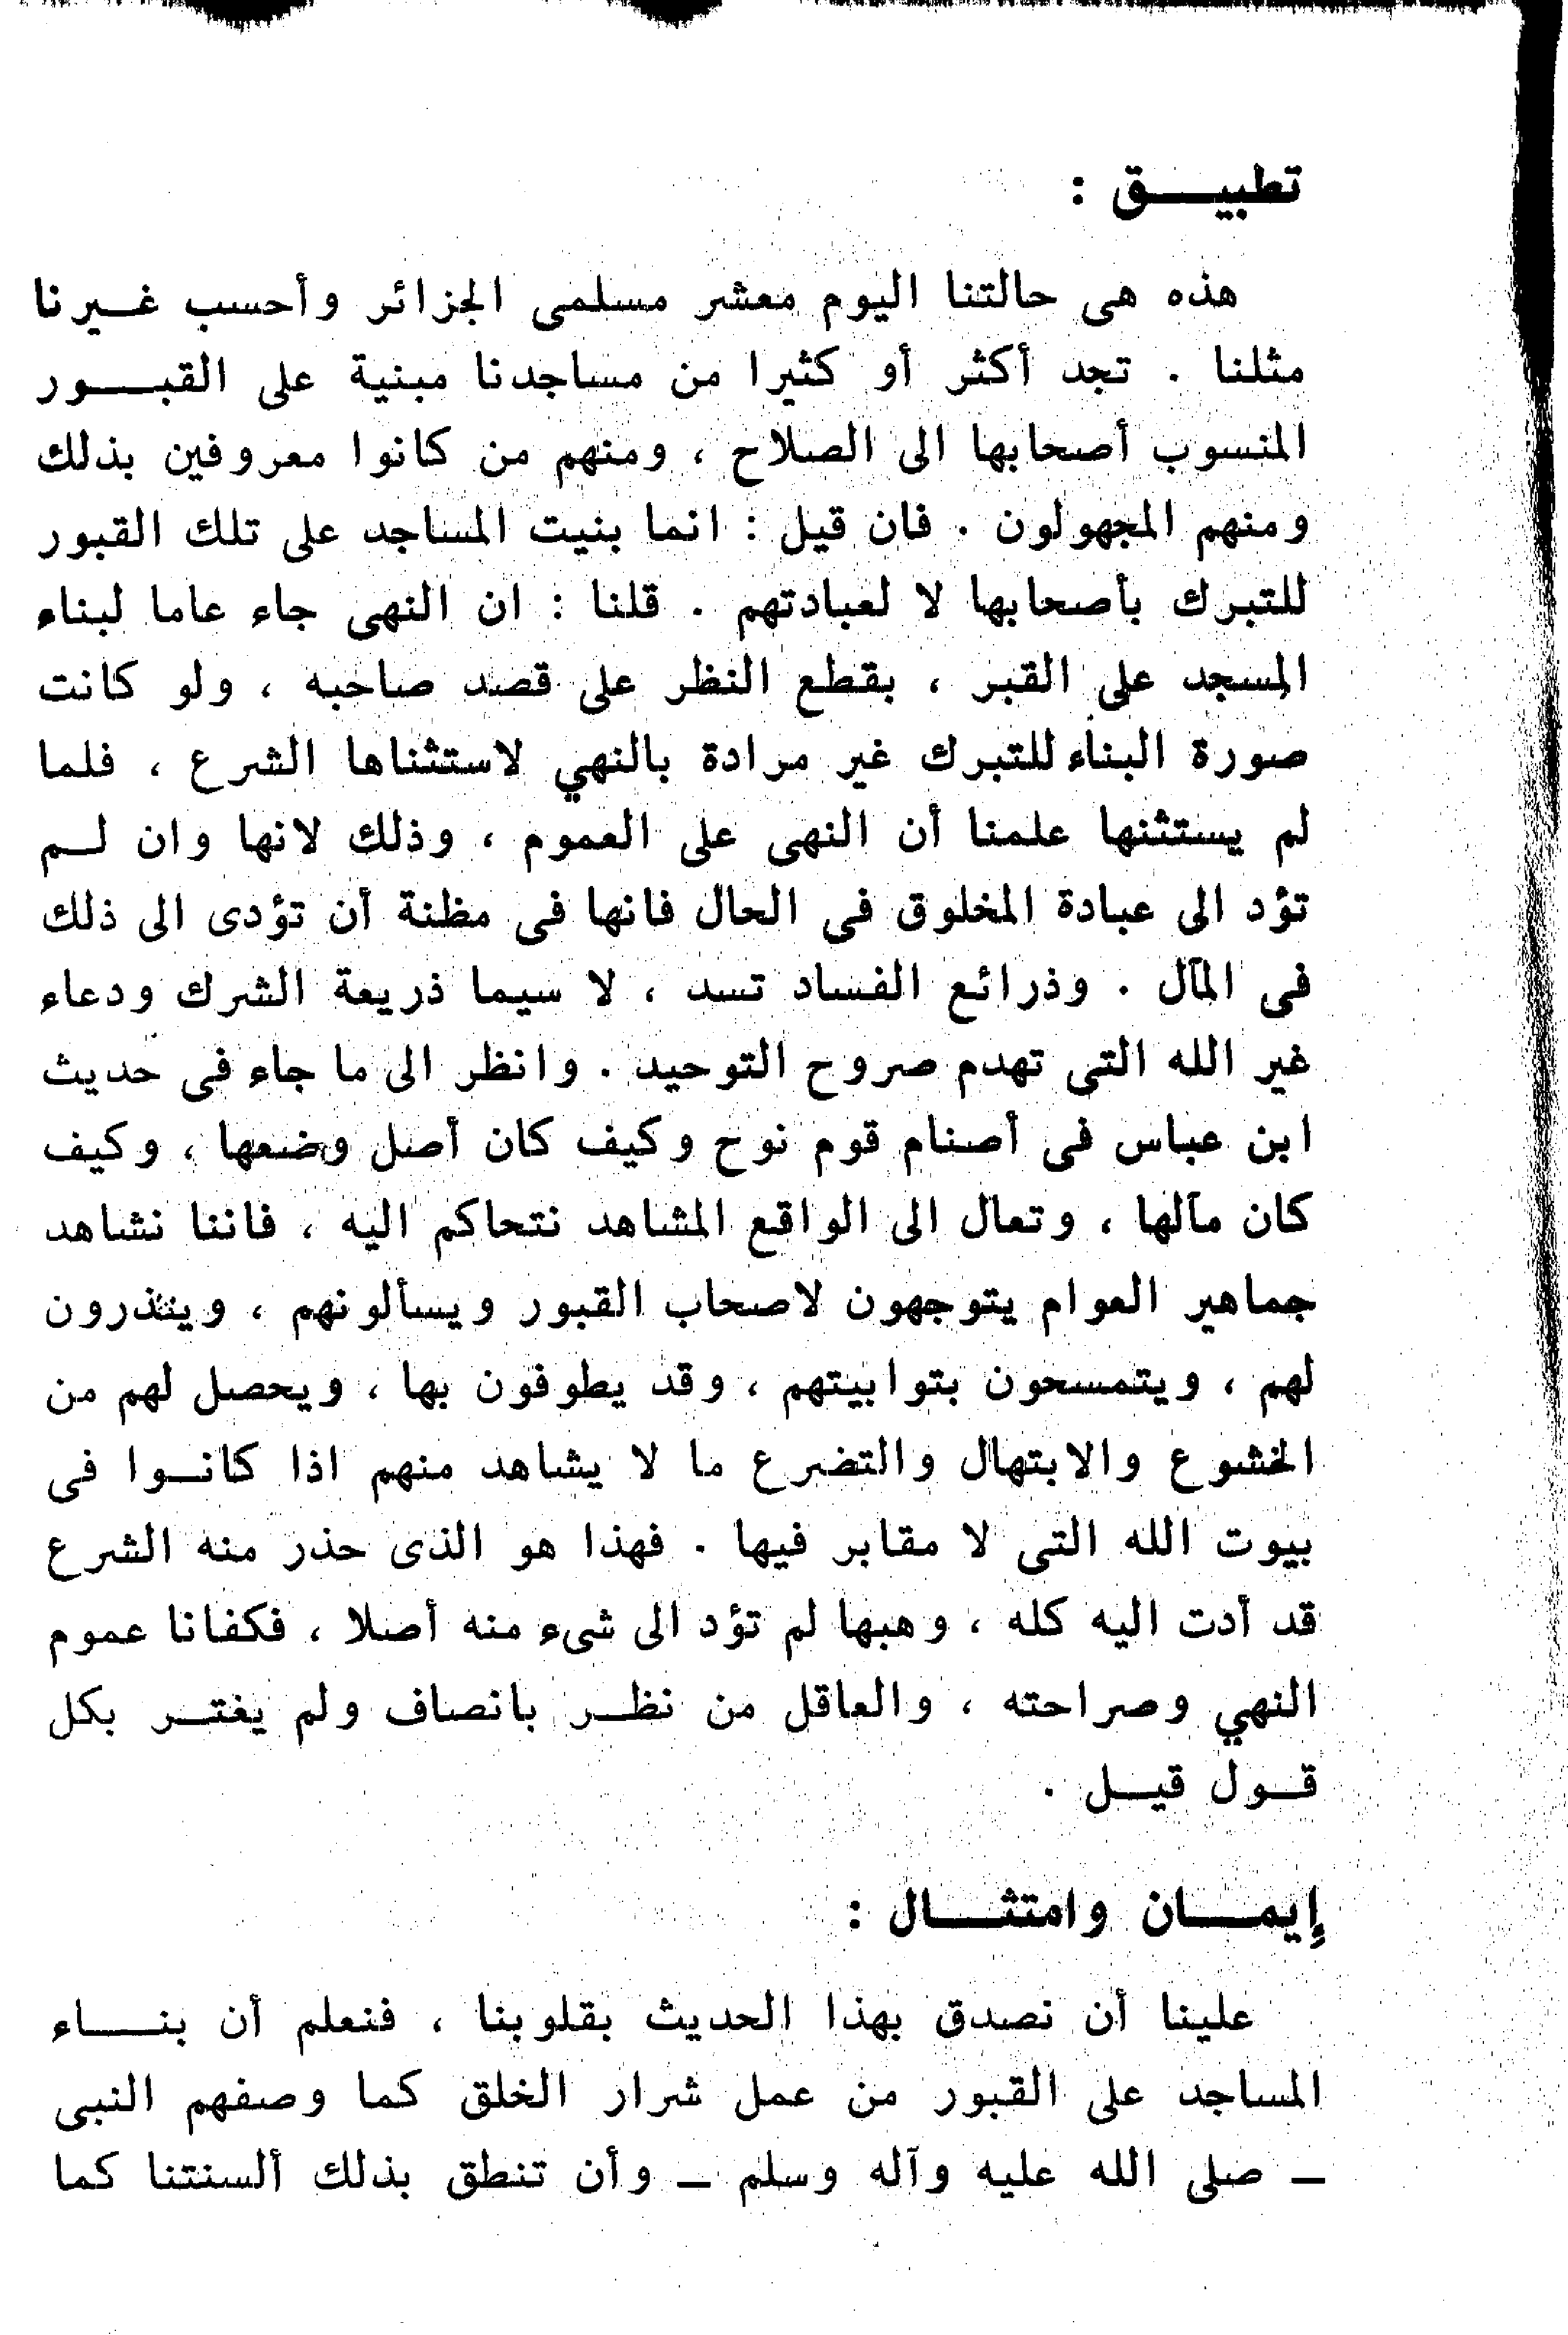 تطبيـــق :
هذه هى حالتنا اليوم معشر مسلمى الجزائر وأحسب غـيرنا
مثلنا . تجد أكثر أو كثيرا من مساجدنا مبنية على القبــور
المنسوب أصحابها الى الصلاح ، ومنهم من كانوا معروفين بذلك
ومنهم المجهولون . فان قيل : انما بنيت المساجد على تلك القبور
للتبرك بأصحابها لا لعبادتهم . قلنا : ان النهى جاء عاما لبناء
المسجد على القبر ، بقطع النظر على قصد صاحبه ، ولو كانت
صورة البناء للتبرك غير مرادة بالنهي لاستثناها الشرع ، فلما
لم يستثنها علمنا أن النهى على العموم ، وذلك لانها وان لـم
تؤد الى عبادة المخلوق فى الحال فانها فى مظنة أن تؤدى الى ذلك
فى المآل . وذرائع الفساد تسد ، لا سيما ذريعة الشرك ودعاء
غير الله التى تهدم صروح التوحيد . وانظر الى ما جاء فى حديث
ابن عباس فى أصنام قوم نوح وكيف كان أصل وضعها ، وكيف
كان مآلها ، وتعال الى الواقع المشاهد نتحاكم اليه ، فاننا نشاهد
جماهير العوام يتوجهون لاصحاب القبور ويسألونهم ، وينذرون
لهم ، ويتمسحون بتوابيتهم ، وقد يطوفون بها ، ويحصل لهم من
الخشوع والابتهال والتضرع ما لا يشاهد منهم اذا كانــوا فى
بيوت الله التى لا مقابر فيها . فهذا هو الذى حذر منه الشرع
قد أدت اليه كله ، وهبها لم تؤد الى شىء منه أصلا ، فكفانا عموم
النهي وصراحته ، والعاقل من نظــر بانصاف ولم يغتــر بكل
قــول قيــل .
إيمـــان وامتثـــال :
علينا أن نصدق بهذا الحديث بقلوبنا ، فنعلم أن بنـــاء
المساجد على القبور من عمل شرار الخلق كما وصفهم النبى
ــ صلى الله عليه وآله وسلم ــ وأن تنطق بذلك ألسنتنا كما